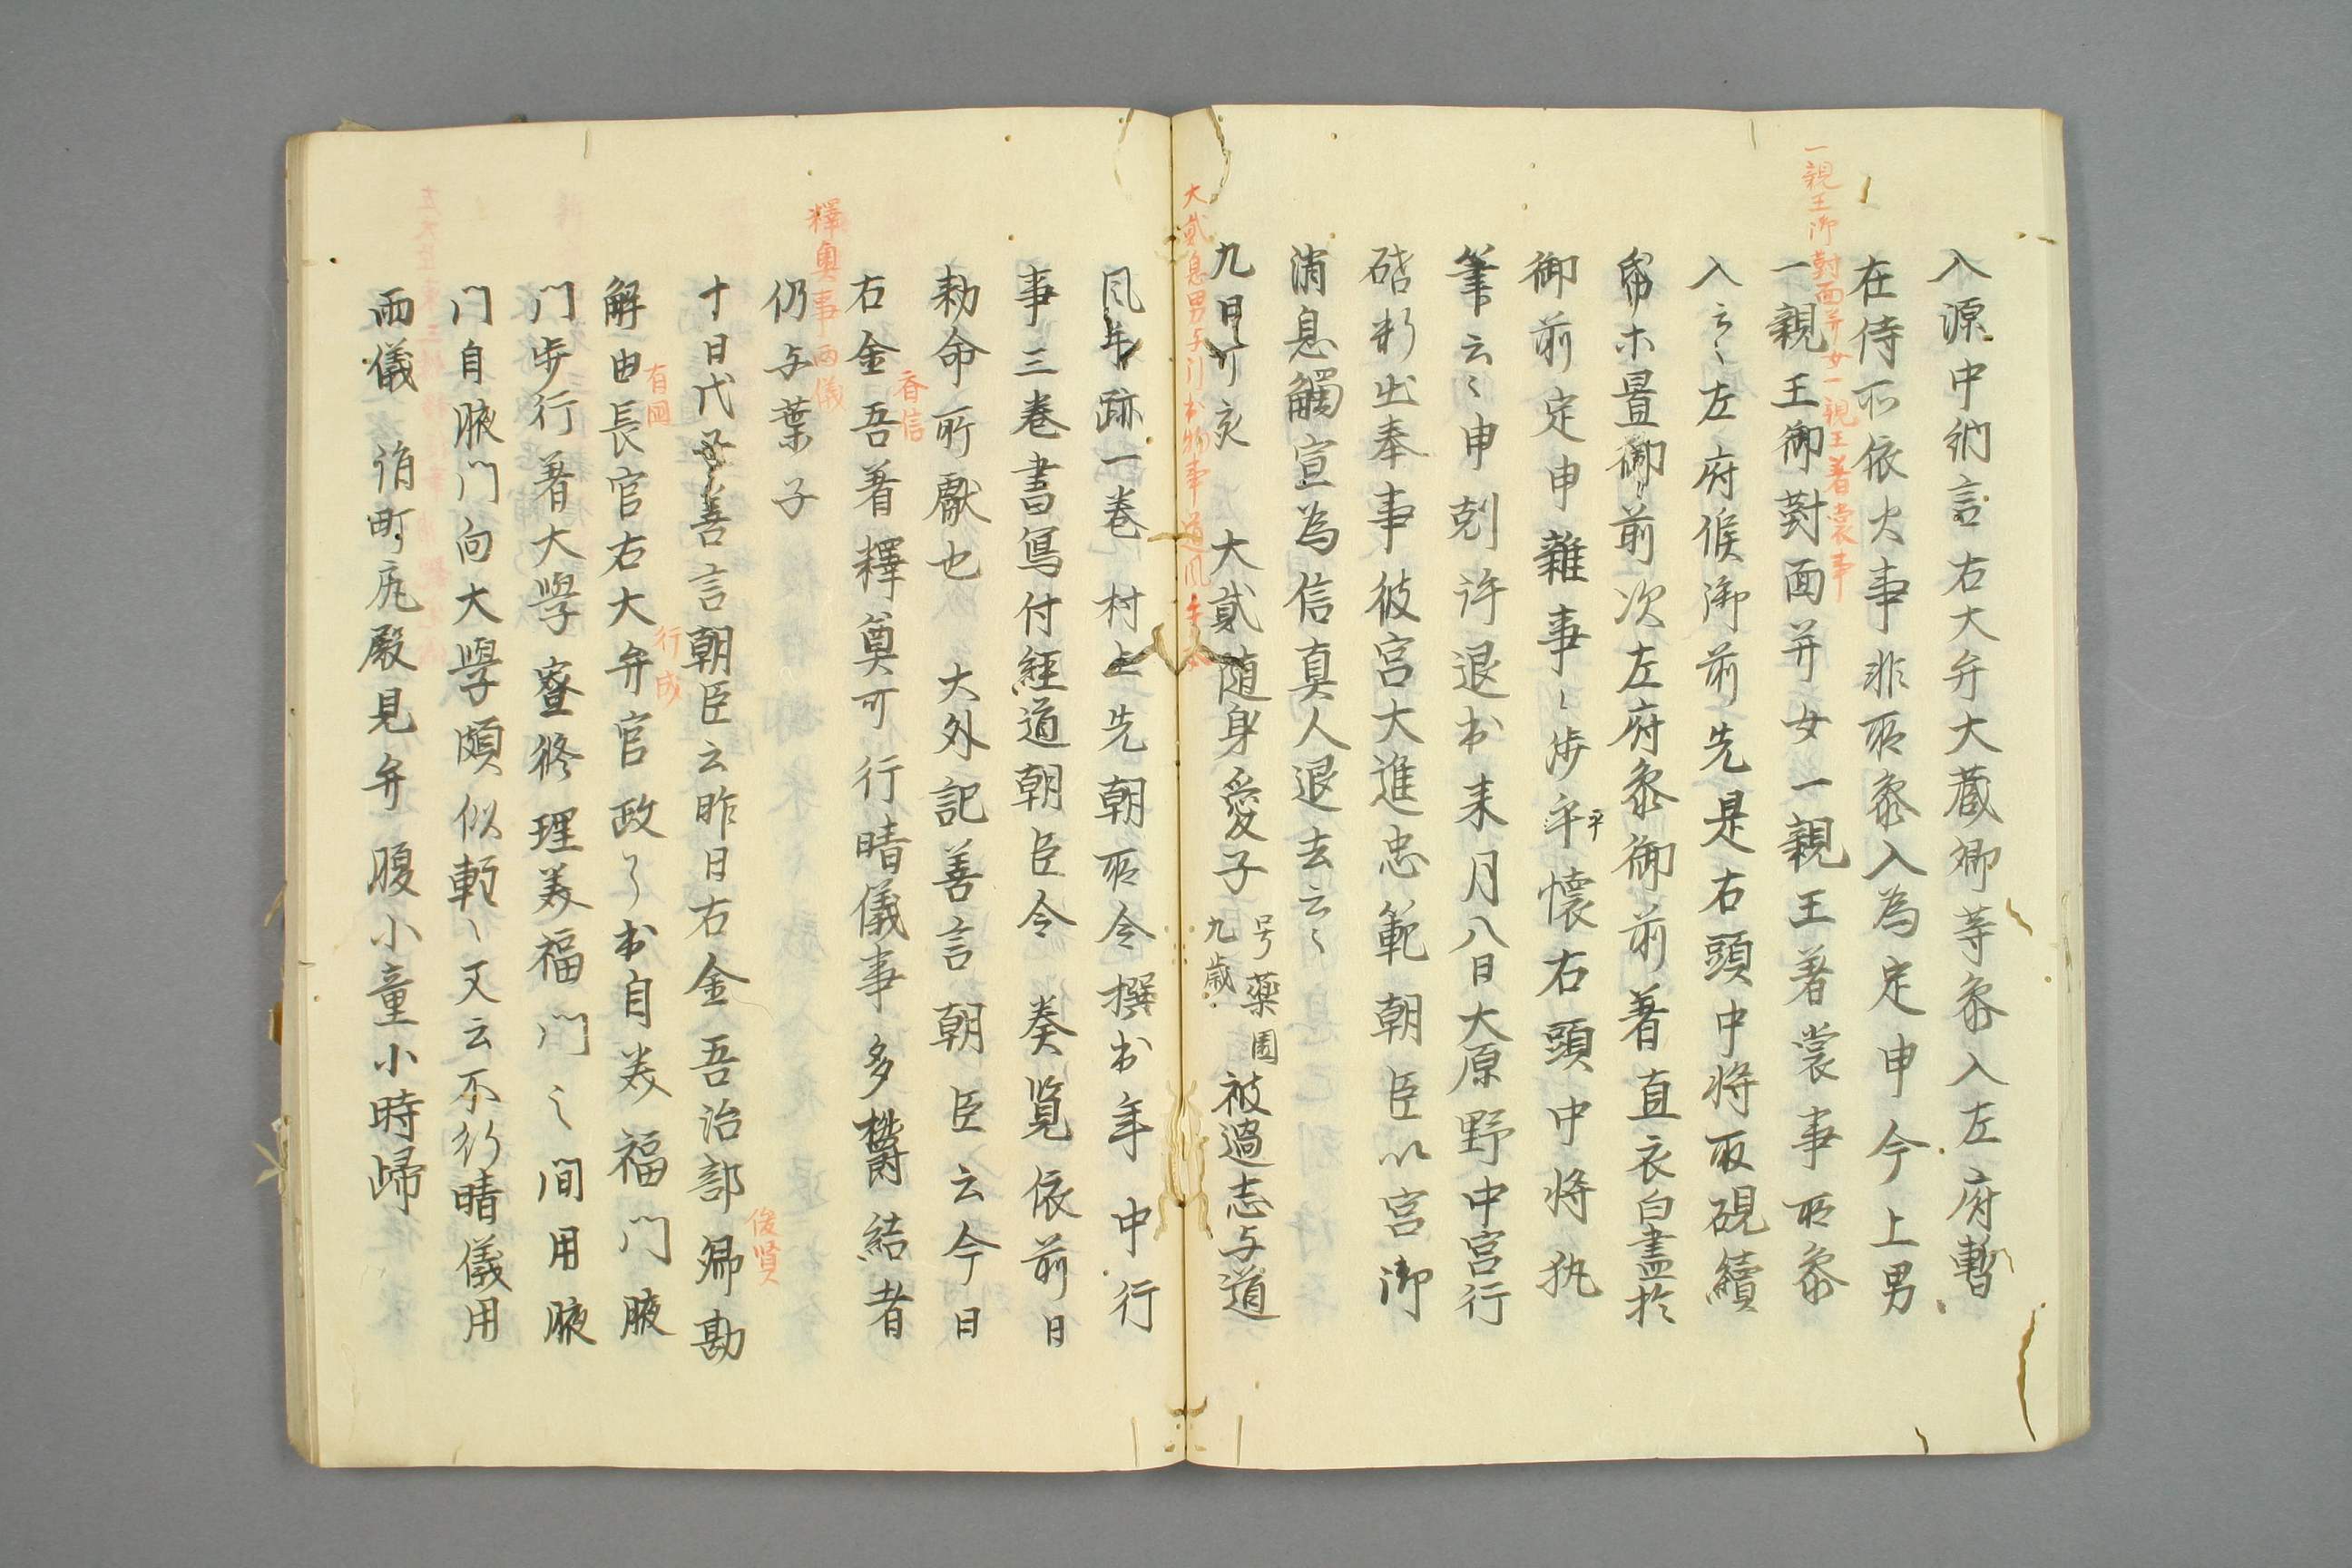 一親王御對面并女一親王著裳事
入源中納言右大弁大蔵卿等参入左府暫
在侍所依火事非所参入為定申今上男
一親王御對面并女一親王著裳事所参
入云々左府候御前先是右頭中将取硯續
帋木置御前次左府参御前著直衣白盡於
御前定申雜事々渉平懐右頭中将執
筆云々申剋許退出来月八日大原野中宮行
啓新出奉事彼宮大進忠範朝臣以宮御
消息觸宣為信真人退去云々
大貳息男与引出物事道風手本
九日丁亥 大貳随身愛子号藥圍九歳被過志与道
風手跡一巻村上先朝所令撰出年中行
事三巻書寫付経道朝臣令 奏覧依前日
勅命所獻也 大外記善言朝臣云今日
右金吾著釋奠可行晴儀事多欝結者
齊信
仍与葉子
釋奠事雨儀
十日戊子善言朝臣云昨日右金吾治部卿勘
俊賢
解由長官右大弁官政了出自美福門腋
有国
行成
門歩行著大學寮修理美福門之間用腋
門自腋門向大學頗似軽々又云不行晴儀用
雨儀 詣町尻殿見弁腹小童小時帰